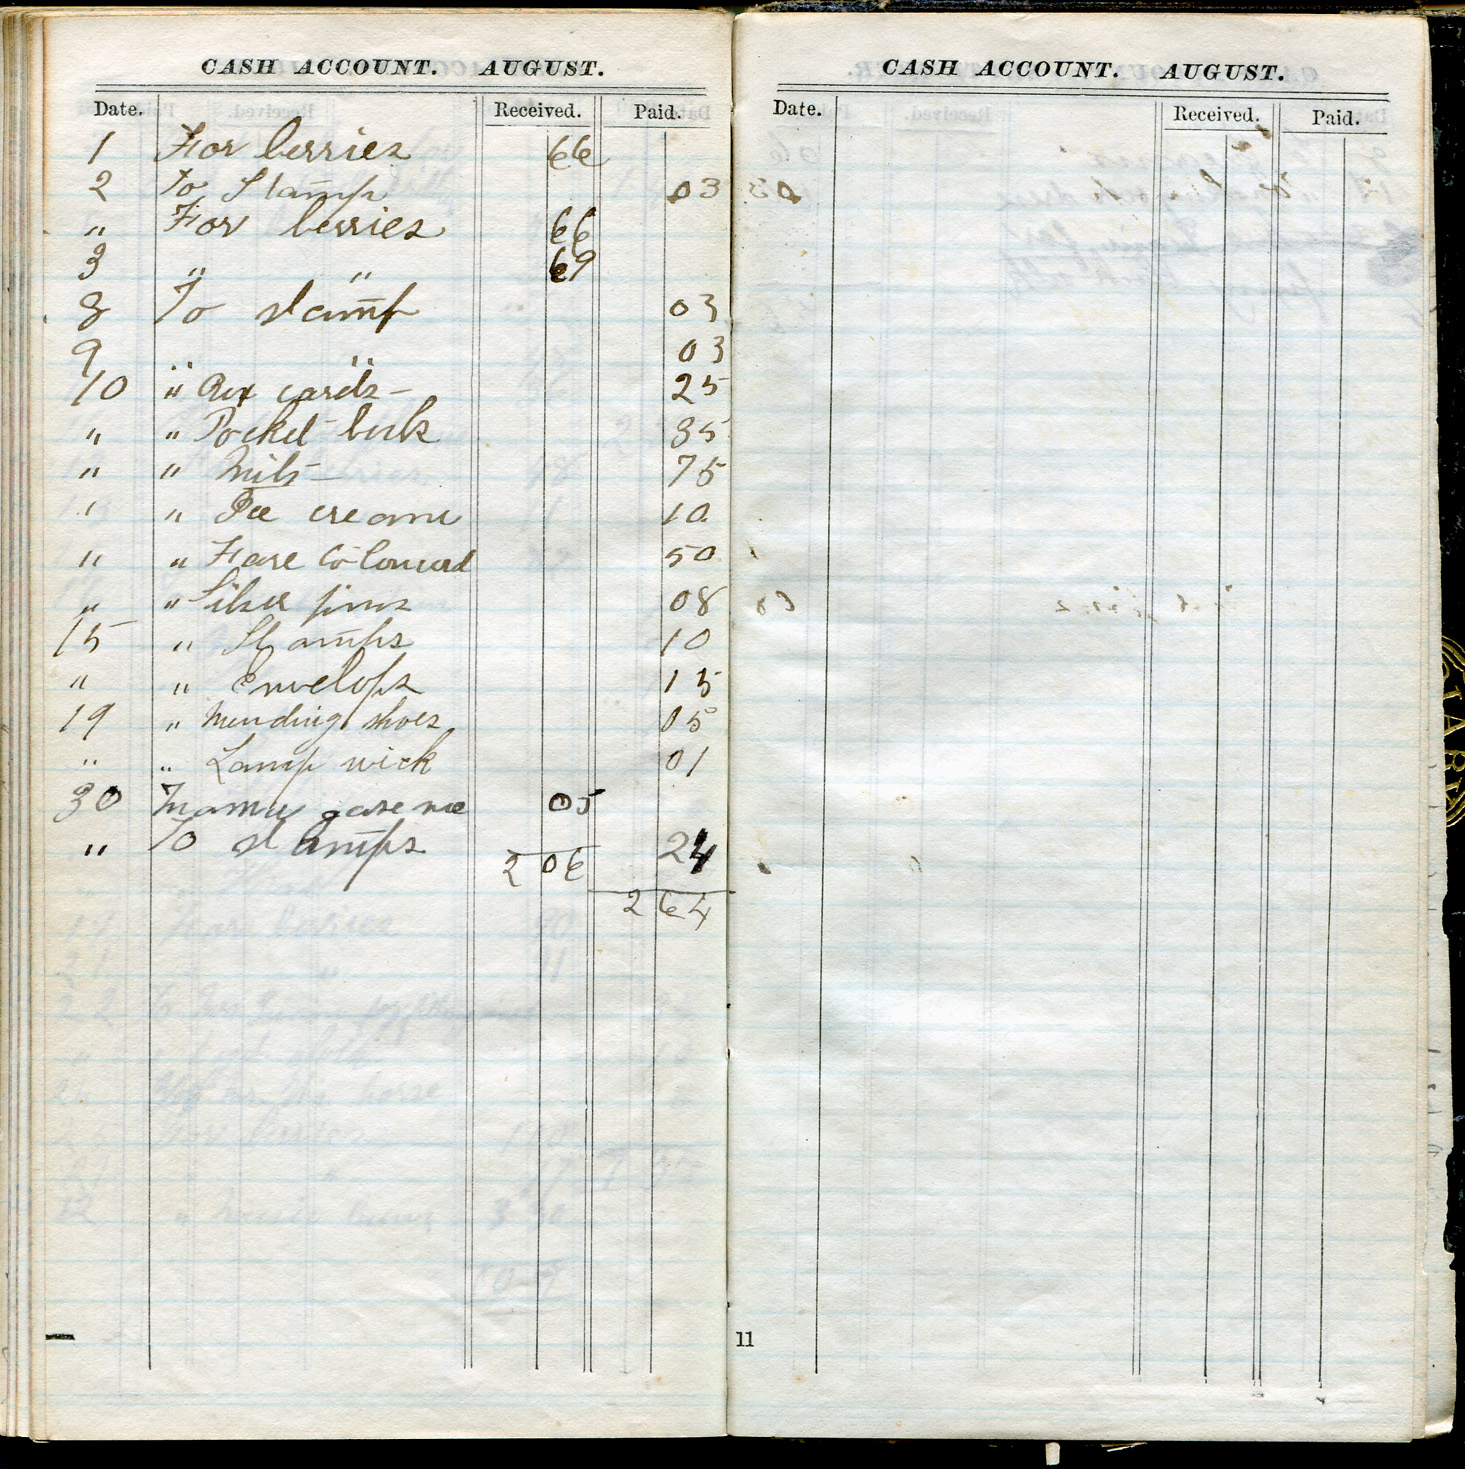 CASH ACCOUNT. AUGUST.
Date. Received. Paid.
1 For berries 66
2 To Stamp 03
" For berries 66
3 " " 69
8 To stamp 03
9 " " 03
10 " cards - 25
" " Pocket-book 35
" " Mits - 75
" " Ice cream 10
" " Fare to Concord 50
" " Silver pins 08
15 " Stamps 10
" " Envelops 15
19 " Mending shoes 05
" " Lamp wick 01
30 Mamy gave me 05
" To stamps 24
2 06
2 64
CASH ACCOUNT. AUGUST.
Date. Received. Paid.
11